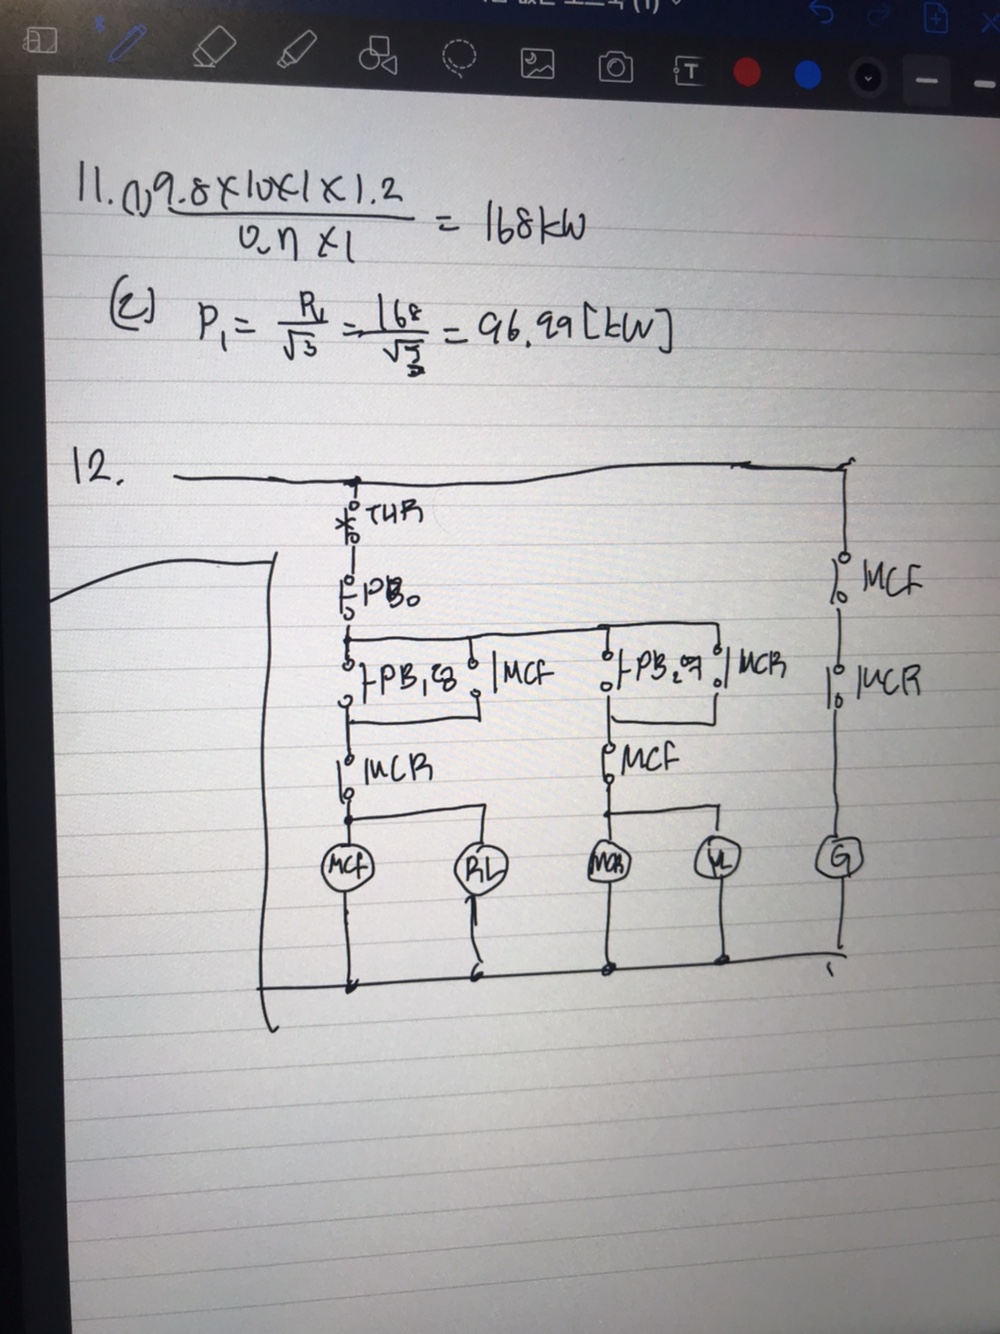 11. (1) 9.8×10×1×1.2
0.7 ×1
= 168kW
(2) P₁= P₁/√3 = 168/√3 = 96.99[kW]
12.
THR
PB₀
PB₁정 MCF PB₂역 MCR
MCF
MCR
MCR MCF
MCF RL MCR YL G
T